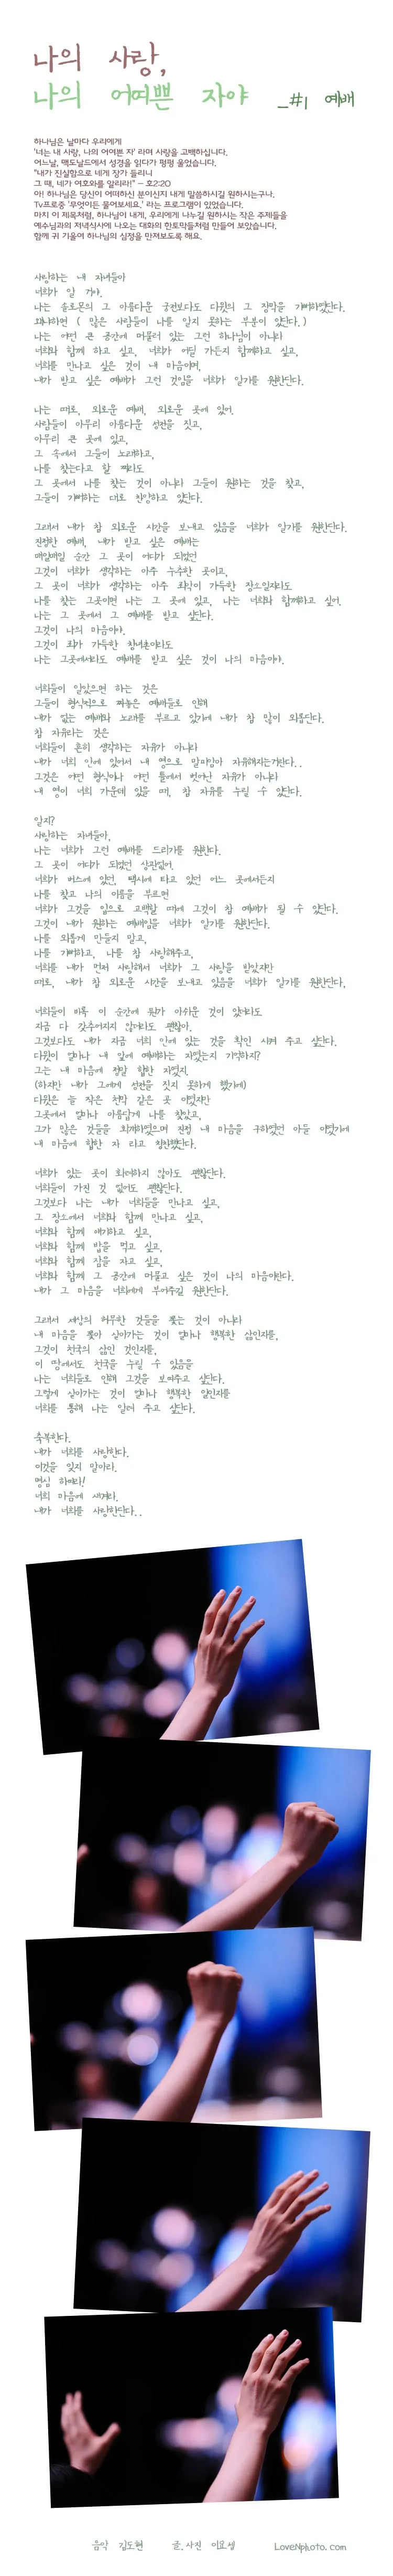 나의 사랑,
나의 어여쁜 자야 _#1 예배
하나님은 날마다 우리에게
'너는 내 사랑, 나의 어여쁜 자' 라며 사랑을 고백하십니다.
어느날, 맥도날드에서 성경을 읽다가 펑펑 울었습니다.
"내가 진실함으로 네게 장가 들리니
그 때, 네가 여호와를 알리라!" - 호2:20
아! 하나님은 당신이 어떠하신 분이신지 내게 말씀하시길 원하시는구나.
Tv프로중 '무엇이든 물어보세요.' 라는 프로그램이 있었습니다.
마치 이 제목처럼, 하나님이 내게, 우리에게 나누길 원하시는 작은 주제들을
예수님과의 저녁식사에 나오는 대화의 한토막들처럼 만들어 보았습니다.
함께 귀 기울여 하나님의 심정을 만져보도록 해요.
사랑하는 내 자녀들아
너희가 알 거야.
나는 솔로몬의 그 아름다운 궁전보다도 다윗의 그 장막을 기뻐하였단다.
왜냐하면 ( 많은 사람들이 나를 알지 못하는 부분이 있단다. )
나는 어떤 큰 공간에 머물러 있는 그런 하나님이 아니라
너희와 함께 하고 싶고, 너희가 어딜 가든지 함께하고 싶고,
너희를 만나고 싶은 것이 내 마음이며,
내가 받고 싶은 예배가 그런 것임을 너희가 알기를 원한단다.
나는 때로, 외로운 예배, 외로운 곳에 있어.
사람들이 아무리 아름다운 성전을 짓고,
아무리 큰 곳에 있고,
그 속에서 그들이 노래하고,
나를 찾는다고 할 찌라도
그 곳에서 나를 찾는 것이 아니라 그들이 원하는 것을 찾고,
그들이 기뻐하는 대로 찬양하고 있단다.
그래서 내가 참 외로운 시간을 보내고 있음을 너희가 알기를 원한단다.
진정한 예배, 내가 받고 싶은 예배는
매일매일 순간 그 곳이 어디가 되었던
그것이 너희가 생각하는 아주 누추한 곳이고,
그 곳이 너희가 생각하는 아주 죄악이 가득한 장소일지라도
나를 찾는 그곳이면 나는 그 곳에 있고, 나는 너희와 함께하고 싶어.
나는 그 곳에서 그 예배를 받고 싶단다.
그것이 나의 마음이야.
그것이 죄가 가득한 창녀촌이라도
나는 그곳에서라도 예배를 받고 싶은 것이 나의 마음이야.
너희들이 알았으면 하는 것은
그들이 형식적으로 짜놓은 예배들로 인해
내가 없는 예배와 노래를 부르고 있기에 내가 참 많이 외롭단다.
참 자유라는 것은
너희들이 흔히 생각하는 자유가 아니라
내가 너희 안에 있어서 내 영으로 말미암아 자유해지는거란다..
그것은 어떤 형식이나 어떤 틀에서 벗어난 자유가 아니라
내 영이 너희 가운데 있을 때, 참 자유를 누릴 수 있단다.
알지?
사랑하는 자녀들아,
나는 너희가 그런 예배를 드리기를 원한다.
그 곳이 어디가 되었던 상관없어.
너희가 버스에 있던, 택시에 타고 있던 어느 곳에서든지
나를 찾고 나의 이름을 부르면
너희가 그것을 입으로 고백할 때에 그것이 참 예배가 될 수 있단다.
그것이 내가 원하는 예배임을 너희가 알기를 원한단다.
나를 외롭게 만들지 말고,
나를 기뻐하고, 나를 참 사랑해주고,
너희를 내가 먼저 사랑해서 너희가 그 사랑을 받았지만
때로, 내가 참 외로운 시간을 보내고 있음을 너희가 알기를 원한단다.
너희들이 비록 이 순간에 뭔가 아쉬운 것이 있더라도
지금 다 갖추어지지 않더라도 괜찮아.
그것보다도 내가 지금 너희 안에 있는 것을 확인 시켜 주고 싶단다.
다윗이 얼마나 내 앞에 예배하는 자였는지 기억하지?
그는 내 마음에 정말 합한 자였지.
(하지만 내가 그에게 성전을 짓지 못하게 했기에)
다윗은 늘 작은 천막 같은 곳 이었지만
그곳에서 얼마나 아름답게 나를 찾았고,
그가 많은 것들을 회개하였으며 진정 내 마음을 구하였던 아들 이였기에
내 마음에 합한 자 라고 칭찬했단다.
너희가 있는 곳이 화려하지 않아도 괜찮단다.
너희들이 가진 것 없어도 괜찮단다.
그것보다 나는 내가 너희들을 만나고 싶고,
그 장소에서 너희와 함께 만나고 싶고,
너희와 함께 얘기하고 싶고,
너희와 함께 밥을 먹고 싶고,
너희와 함께 잠을 자고 싶고,
너희와 함께 그 공간에 머물고 싶은 것이 나의 마음이란다.
내가 그 마음을 너희에게 부어주길 원한단다.
그래서 세상의 허무한 것들을 쫓는 것이 아니라
내 마음을 쫓아 살아가는 것이 얼마나 행복한 삶인지를,
그것이 천국의 삶인 것인지를,
이 땅에서도 천국을 누릴 수 있음을
나는 너희들로 인해 그것을 보여주고 싶단다.
그렇게 살아가는 것이 얼마나 행복한 일인지를
너희를 통해 나는 알려 주고 싶단다.
축복한다.
내가 너희를 사랑한다.
이것을 잊지 말아라.
명심 하여라!
너희 마음에 새겨라.
내가 너희를 사랑한단다..
음악 김도현 글.사진 이요셉 LoveNphoto.com